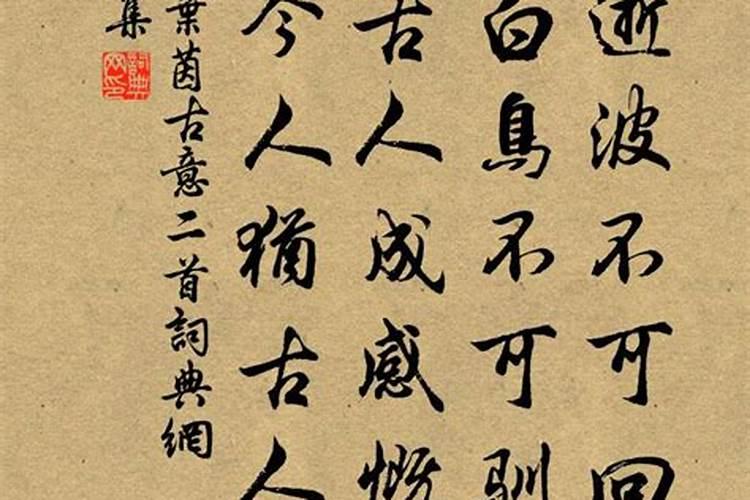 逝波不可回
白鳥不可馴
古人成感慨
今人猶古人
葉茵古意二首詞典網
集
詞典网印